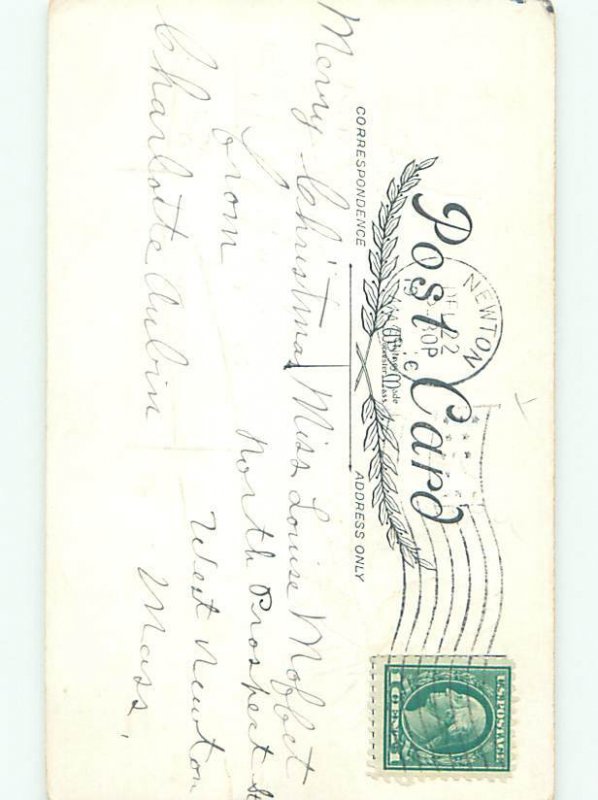 Post Card
CORRESPONDENCE
ADDRESS ONLY
NEWTON
DEC 22
30P
Made
Mass.
U.S. POSTAGE
1 CENT 1
Merry Christmas
from
Charlotte Aubin
Miss Louise Moffet
North Prospect St
West Newton
Mass.